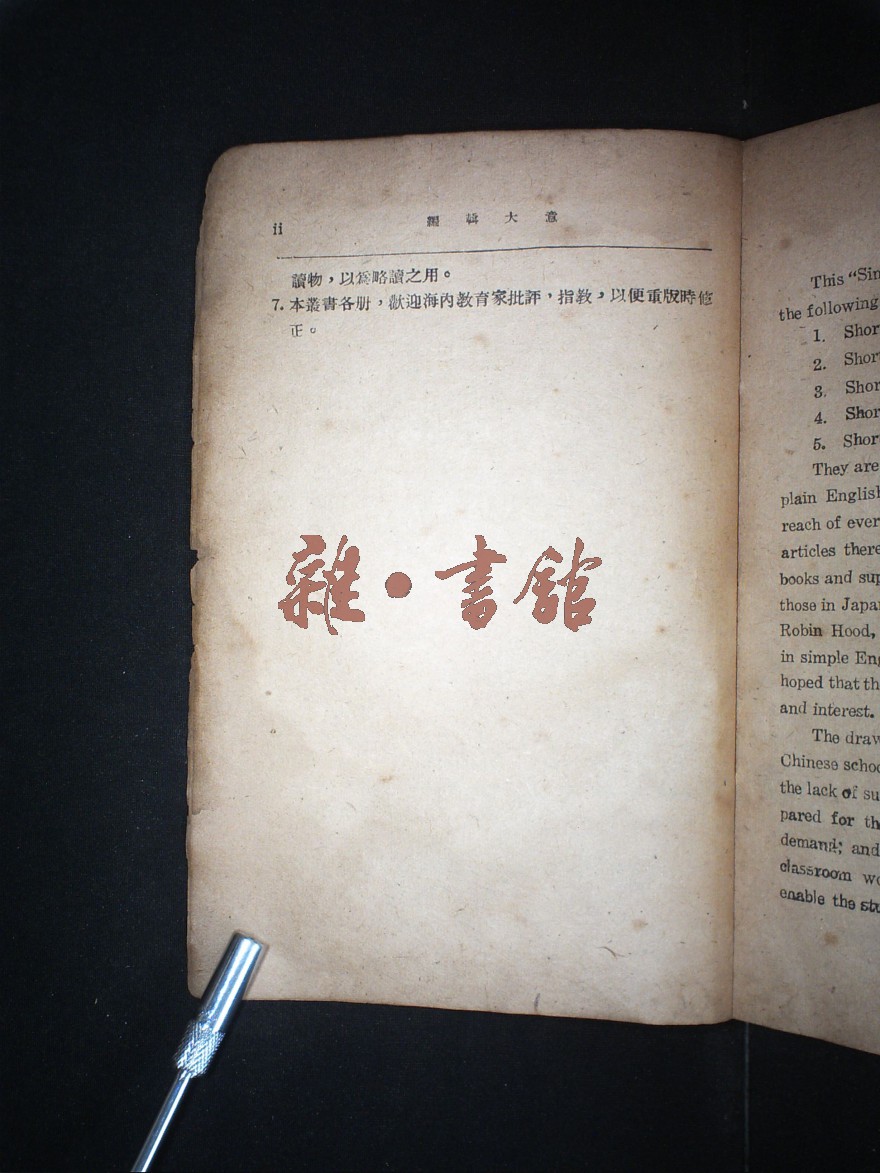 ii
編輯大意
讀物，以爲略讀之用。
7. 本叢書各册，歡迎海內教育家批評，指教，以便重版時修
正。
雜·書館
This "Sin
the following
1. Shor
2. Short
3. Shor
4. Shor
5. Shor
They are
plain English
reach of ever
articles there
books and sup
those in Japa
Robin Hood,
in simple Eng
hoped that th
and interest.
The draw
Chinese schoo
the lack of su
pared for th
demand; and
classroom wo
enable the stu